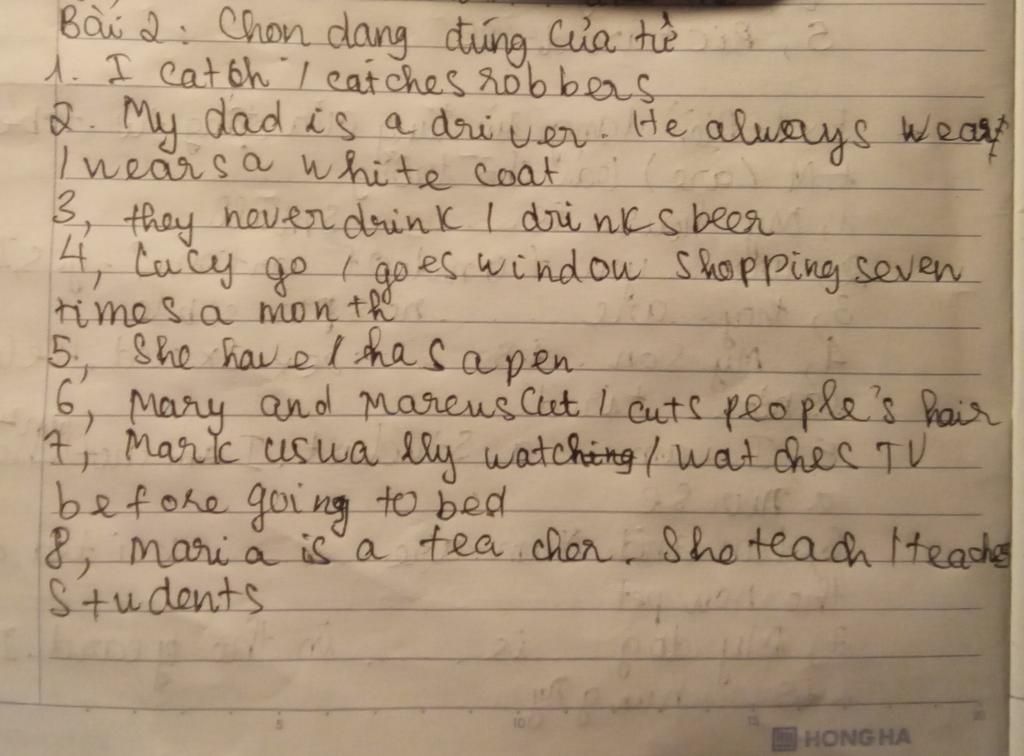 Bài 2: Chon dang đúng của từ
1. I catch / catches robbers
2. My dad is a driver. He always wear
/ wears a white coat
3, they never drink / drinks beer
4, Lucy go / goes window shopping seven
times a month
5, she have / has a pen
6, Mary and Marcus cut / cuts people's hair
7, Mark usually watching / watches TV
before going to bed
8, Maria is a teacher. She teach / teaches
students
5
10
15
20
HONG HA